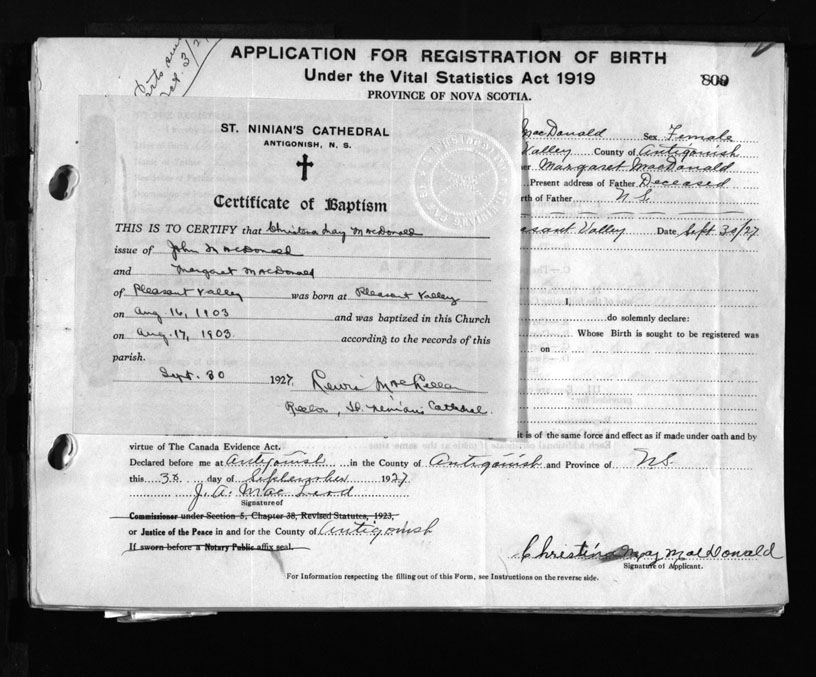 APPLICATION FOR REGISTRATION OF BIRTH
Under the Vital Statistics Act 1919
PROVINCE OF NOVA SCOTIA.
809
MacDonald Sex Female
Valley County of Antigonish
Margaret MacDonald
Present address of Father Deceased
rth of Father N S.
easant Valley Date Sept 30/27
I,
do solemnly declare:
Whose Birth is sought to be registered was
on
ST. NINIAN'S CATHEDRAL
ANTIGONISH, N. S.
Certificate of Baptism
THIS IS TO CERTIFY that Christena May MacDonald
issue of John MacDonald
and Margaret MacDonald
of Pleasant Valley was born at Pleasant Valley
on Aug 16, 1903 and was baptized in this Church
on Aug. 17, 1903 according to the records of this
parish.
Sept. 30 1927,
Rector, St. Ninian's Cathedral.
it is of the same force and effect as if made under oath and by
virtue of The Canada Evidence Act.
Declared before me at Antigonish in the County of Antigonish and Province of N.S.
this 30 day of September 1927
J. A. Mac
Signature of
Commissioner under Section 5, Chapter 38, Revised Statutes, 1923,
or Justice of the Peace in and for the County of Antigonish
If sworn before a Notary Public affix seal.
Christina May MacDonald
Signature of Applicant.
For Information respecting the filling out of this Form, see Instructions on the reverse side.